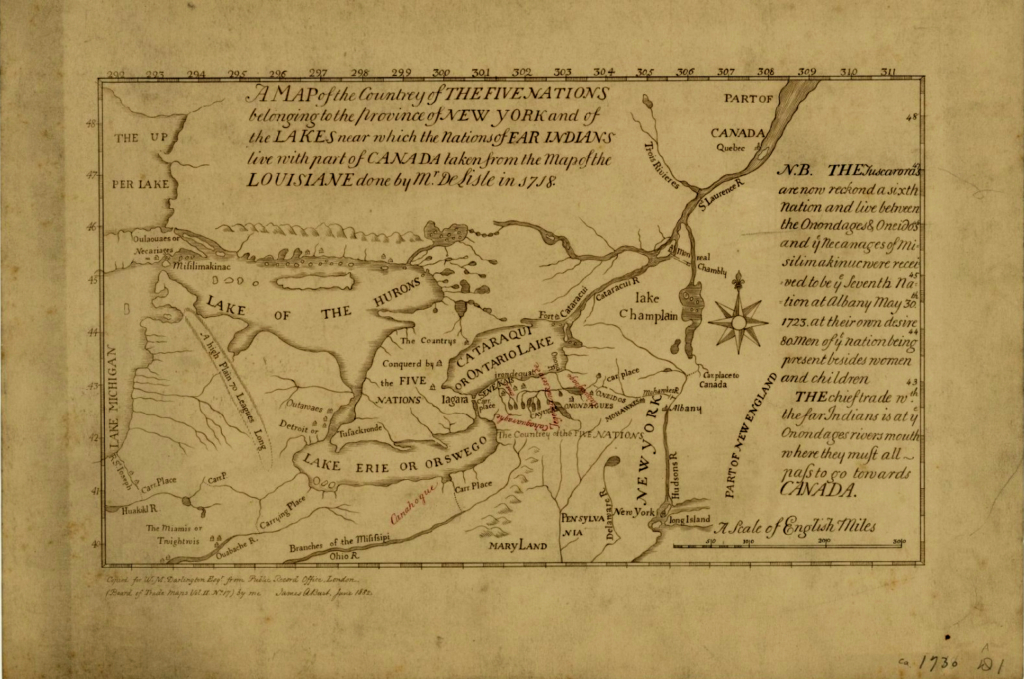 292 293 294 295 296 297 298 299 300 301 302 303 304 305 306 307 308 309 310 311
A MAP of the Countrey of THE FIVE NATIONS
belonging to the Province of NEW YORK and of
the LAKES near which the Nations of FAR INDIANS
live with part of CANADA taken from the Map of the
LOUISIANE done by Mr. De Lisle in 1718.
PART OF
CANADA
Quebec
Trois Rivieres
St Laurence R
THE UP
PER LAKE
48
47
46
45
44
43
42
41
48
45
44
43
N.B. THE Tuscarora's
are now reckond a sixth
Nation and live between
the Onondages & Oneidos
and ye Necariages of Mi-
silimakinac were recei
ved to be ye Seventh Na
tion at Albany May 30
1723. at their own desire
80 Men of ye Nation being
present besides women
and children
THE chief trade wth
the far Indians is at ye
Onondages rivers mouth
where they must all
pass to go towards
CANADA.
Outaouaes or
Necariages
Misilimakinac
LAKE OF THE HURONS
Fort Cataracui
Cataracui R
Monreal
Chambly
lake
Champlain
CATARAQUI
OR ONTARIO LAKE
The Countrys
Conquerd by
the FIVE
NATIONS
Iagara
LAKE MICHIGAN
A high Plain 70 Leagues Long
Outaouaes
Detroit or
Tusackronde
LAKE ERIE OR OSWEGO
Irondequat
Carr place
ONEIDOS
ONONDAGUES
MOHAWKS R
Carr place
Albany
Car place to
Canada
The Country of the FIVE NATIONS
NEW YORK
Hudsons R
PART OF NEW ENGLAND
R. St Joseph
Carr. Place
Carr P
Huakiki R
Carrying Place
The Miamis or
Twightwis
Ouabache R.
Canahogue
Carr. Place
Branches of the Misisipi
Ohio R
MARYLAND
PENSYLVA
NIA
Delaware R
New York
long Island
A Scale of English Miles
Copied for W. M. Darlington Esqr. from Public Record Office London
(Board of Trade Maps Vol. II No. 17) by me James A Burt June 1882.
ca 1730